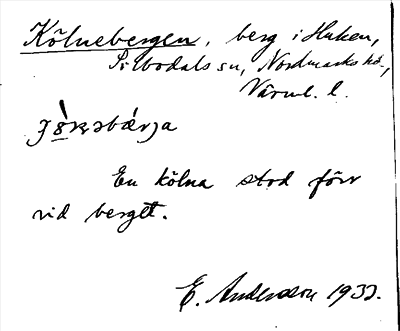 Kölnebergen, berg i Huken,
Silbodals sn, Nordmarks hd.,
Värml. l.
En kölna stod förr
vid berget.
E. Anderson 1933.